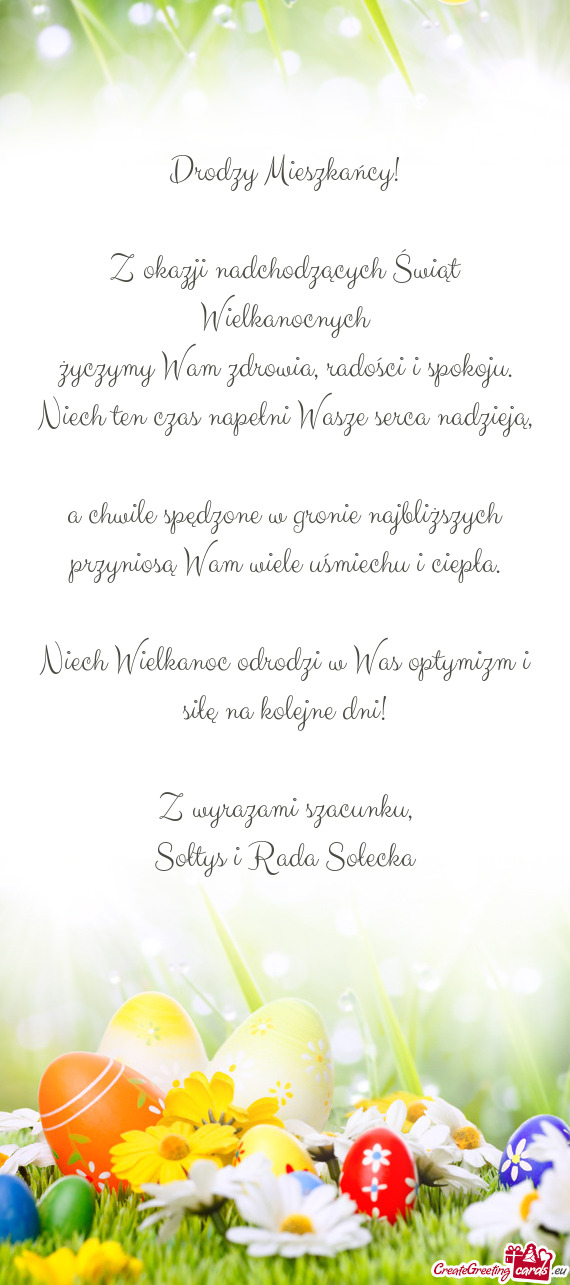 Drodzy Mieszkańcy!
Z okazji nadchodzących Świąt
Wielkanocnych
życzymy Wam zdrowia, radości i spokoju.
Niech ten czas napełni Wasze serca nadzieją,
a chwile spędzone w gronie najbliższych
przyniosą Wam wiele uśmiechu i ciepła.
Niech Wielkanoc odrodzi w Was optymizm i
siłę na kolejne dni!
Z wyrazami szacunku,
Sołtys i Rada Sołecka
CreateGreeting cards .eu